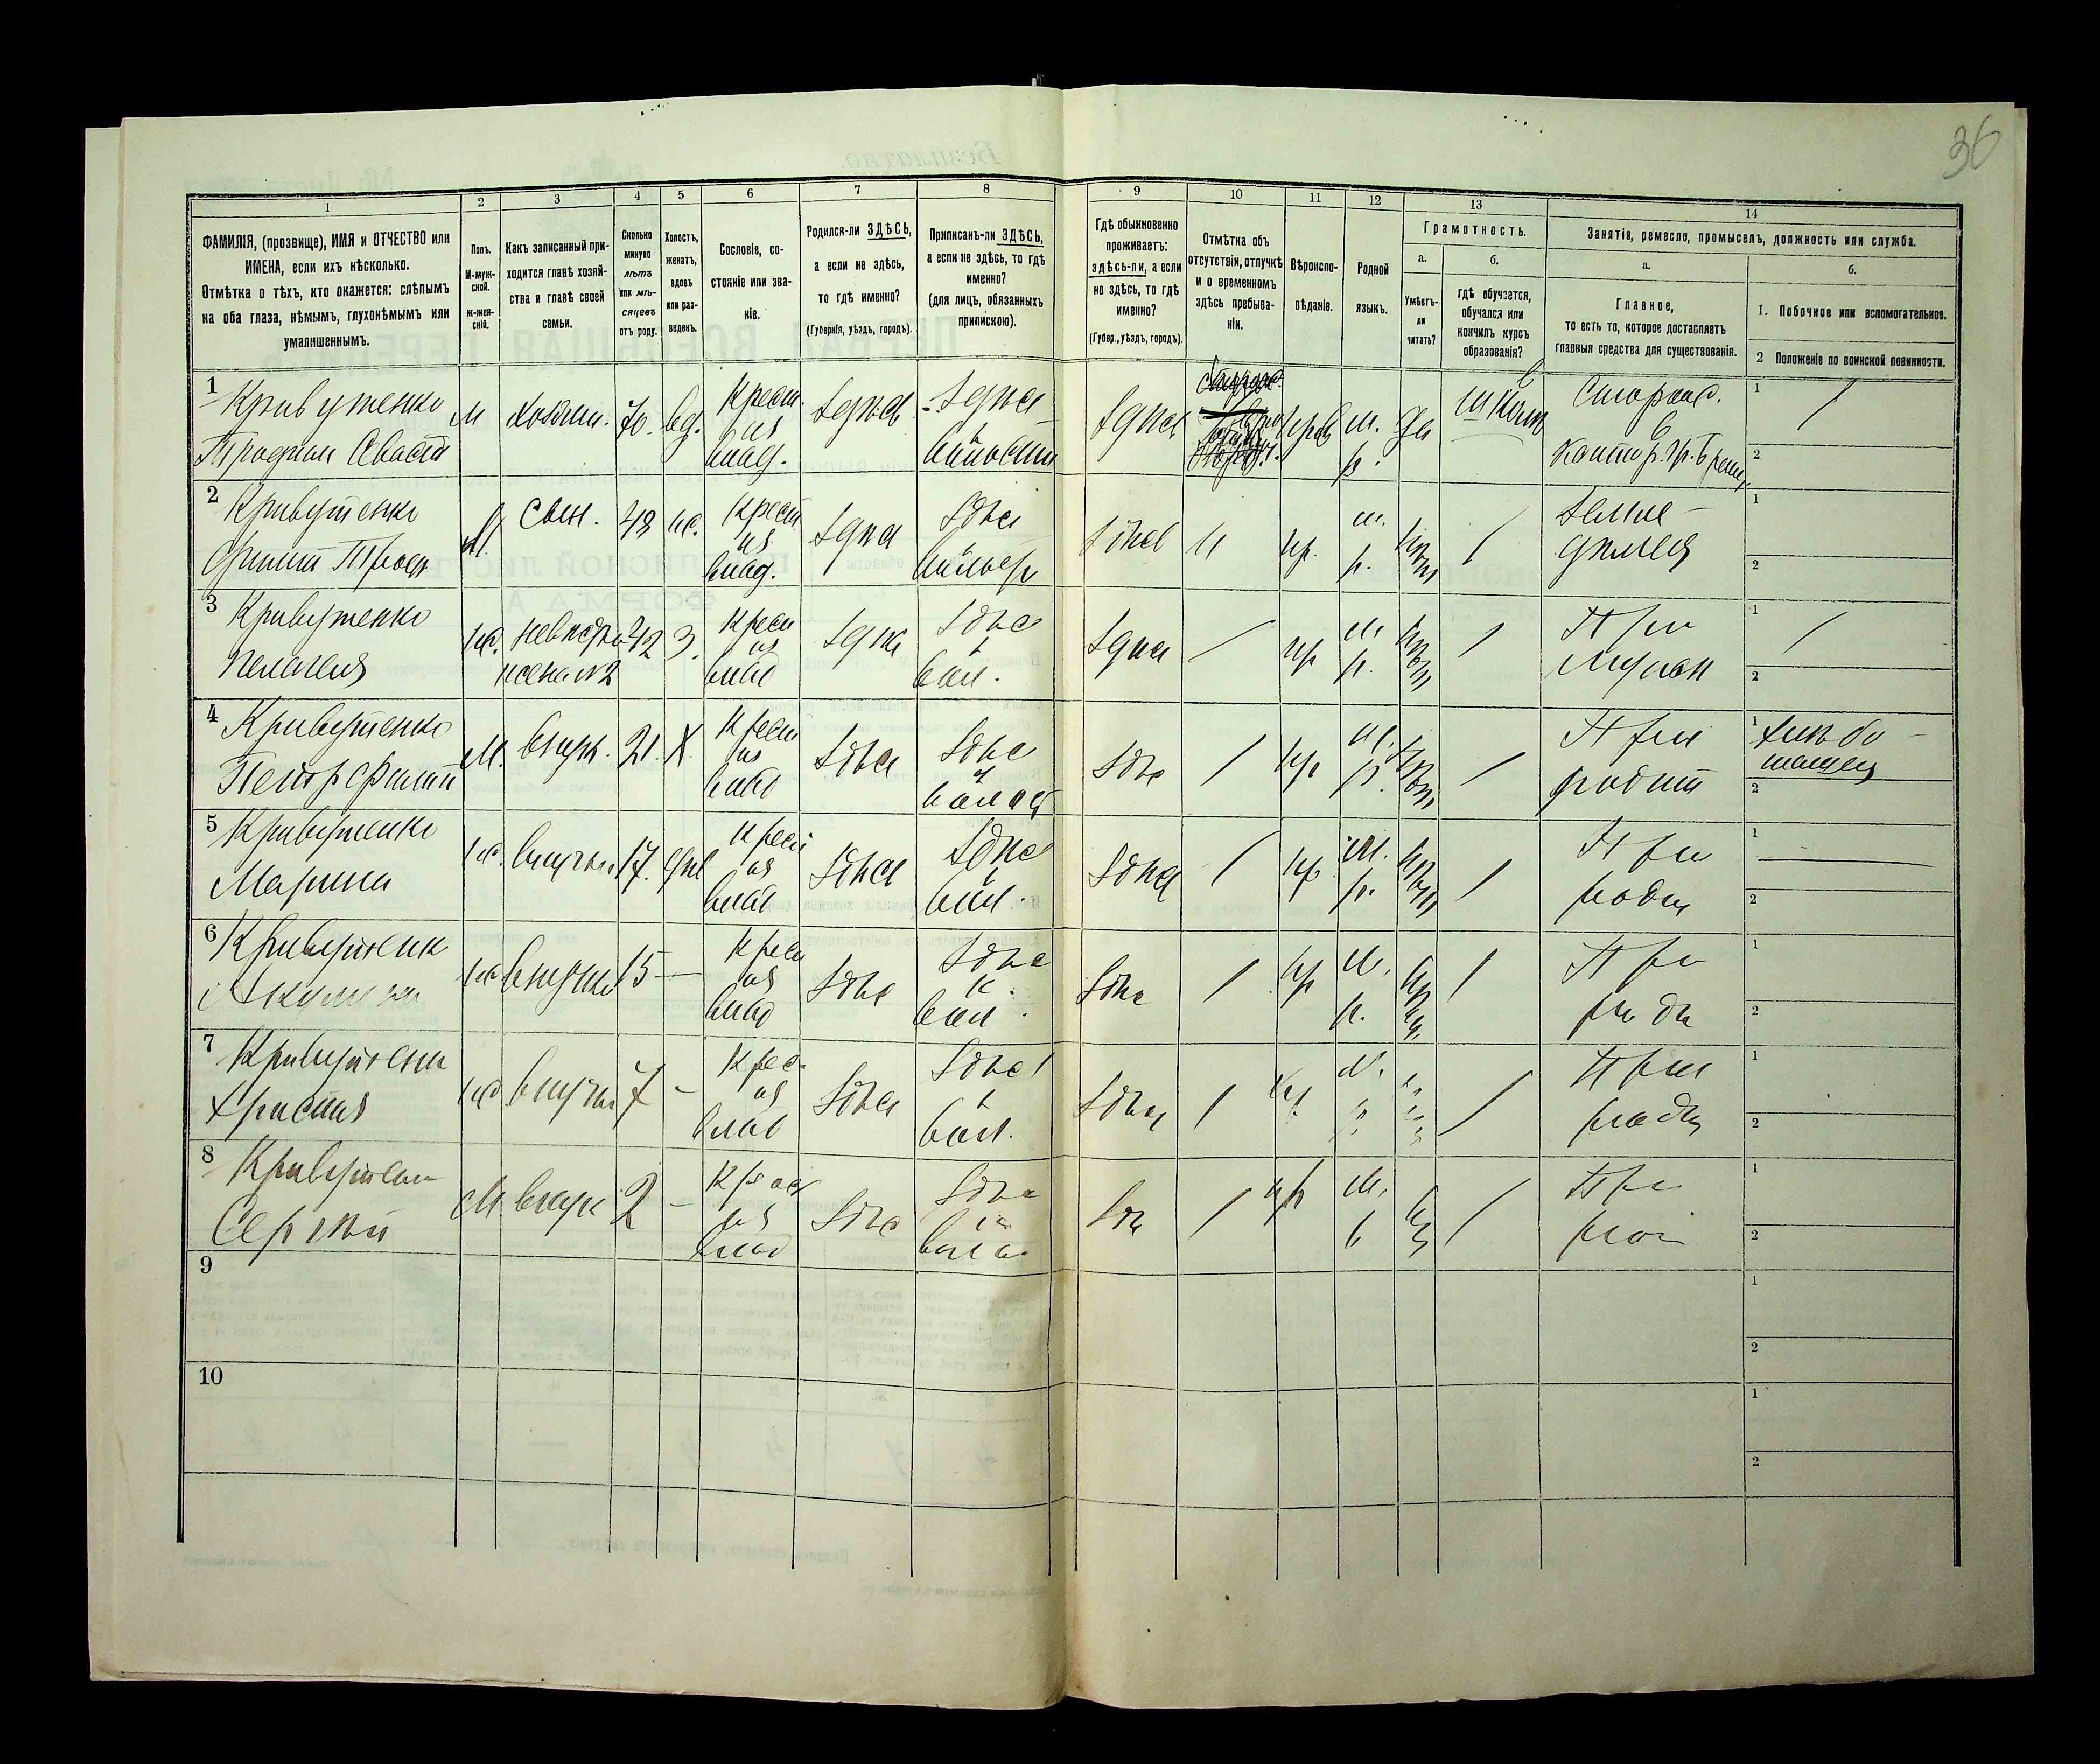 36
1
2
3
4
5
6
7
8
9
10
11
12
13
14
ФАМИЛІЯ, (прозвище), ИМЯ и ОТЧЕСТВО или
ИМЕНА, если ихъ нѣсколько.
Отмѣтка о тѣхъ, кто окажется: слѣпымъ
на оба глаза, нѣмымъ, глухонѣмымъ или
умалишеннымъ.
Полъ.
М-муж-
ской.
Ж-жен-
скій.
Какъ записанный при-
ходится главѣ хозяй-
ства и главѣ своей
семьи.
Сколько
минуло
лѣтъ
или мѣ-
сяцевъ
отъ роду.
Холостъ,
женатъ,
вдовъ
или раз-
веденъ.
Сословіе, со-
стояніе или зва-
ніе.
Родился-ли ЗДѢСЬ,
а если не здѣсь,
то гдѣ именно?
(Губернія, уѣздъ, городъ).
Приписанъ-ли ЗДѢСЬ,
а если не здѣсь, то гдѣ
именно?
(для лицъ, обязанныхъ
припискою).
Гдѣ обыкновенно
проживаетъ:
здѣсь-ли, а если
не здѣсь, то гдѣ
именно?
(Губер., уѣздъ, городъ).
Отмѣтка объ
отсутствіи, отлучкѣ
и о временномъ
здѣсь пребыва-
ніи.
Вѣроиспо-
вѣданіе.
Родной
языкъ.
Грамотность.
а.
Умѣетъ-
ли
читать?
б.
гдѣ обучается,
обучался или
кончилъ курсъ
образованія?
Занятія, ремесло, промыселъ, должность или служба.
а.
Главное,
то есть то, которое доставляетъ
главныя средства для существованія.
б.
1. Побочное или вспомогательное.
2 Положеніе по воинской повинности.
1 Кривутенко
Трофим
М
хозяин.
70.
вд.
Крест.
из
влад.
здѣсь
здѣсь
в
волости
здѣсь
прав
м.
р.
да
школ
Сторож.
в
1
2
2 Кривутенко
Филип Троф
М.
сын.
48
ж.
Крест
из
влад.
здѣсь
здѣсь
в
здѣсь
пр.
м.
р.
/
земле-
дѣлец
1
2
3 Кривутенко
Пелагея
ж.
невѣстка
жена №2
42
З.
Крес
из
влад
здѣсь
здѣсь
в
вол.
здѣсь
/
пр
м
р.
/
При
мужѣ
1 /
2
4 Кривутенко
Петр Филип
М.
внук.
21.
Х
Крест
из
влад
здѣсь
здѣсь
в
волост
здѣ
/
пр
м.
р.
/
При
родит
1 хлѣбо-
пашец
2
5 Кривутенко
Марина
ж.
внучка
17.
дѣв
Крес
из
влад
здѣсь
здѣсь
в
вол.
здѣсь
/
пр
м.
р.
/
При
роди
1
2
6 Кривутенк
Акулина
ж
внучка
15
—
Крес
из
влад
здѣсь
здѣсь
в
вол.
здѣсь
/
пр
м.
р.
/
При
роди
1
2
7 Кривутенк
Христия
ж
внучка
7
-
Крес.
из
влад
здѣсь
здѣсь
в
вол.
здѣсь
/
пр
м.
р.
/
При
роди
1
2
8 Кривутен
Сергѣй
М
внук
2
-
Крес
из
влад
здѣсь
здѣсь
в
воло
здѣ
/
пр
м.
р
/
При
1
2
9
1
2
10
1
2